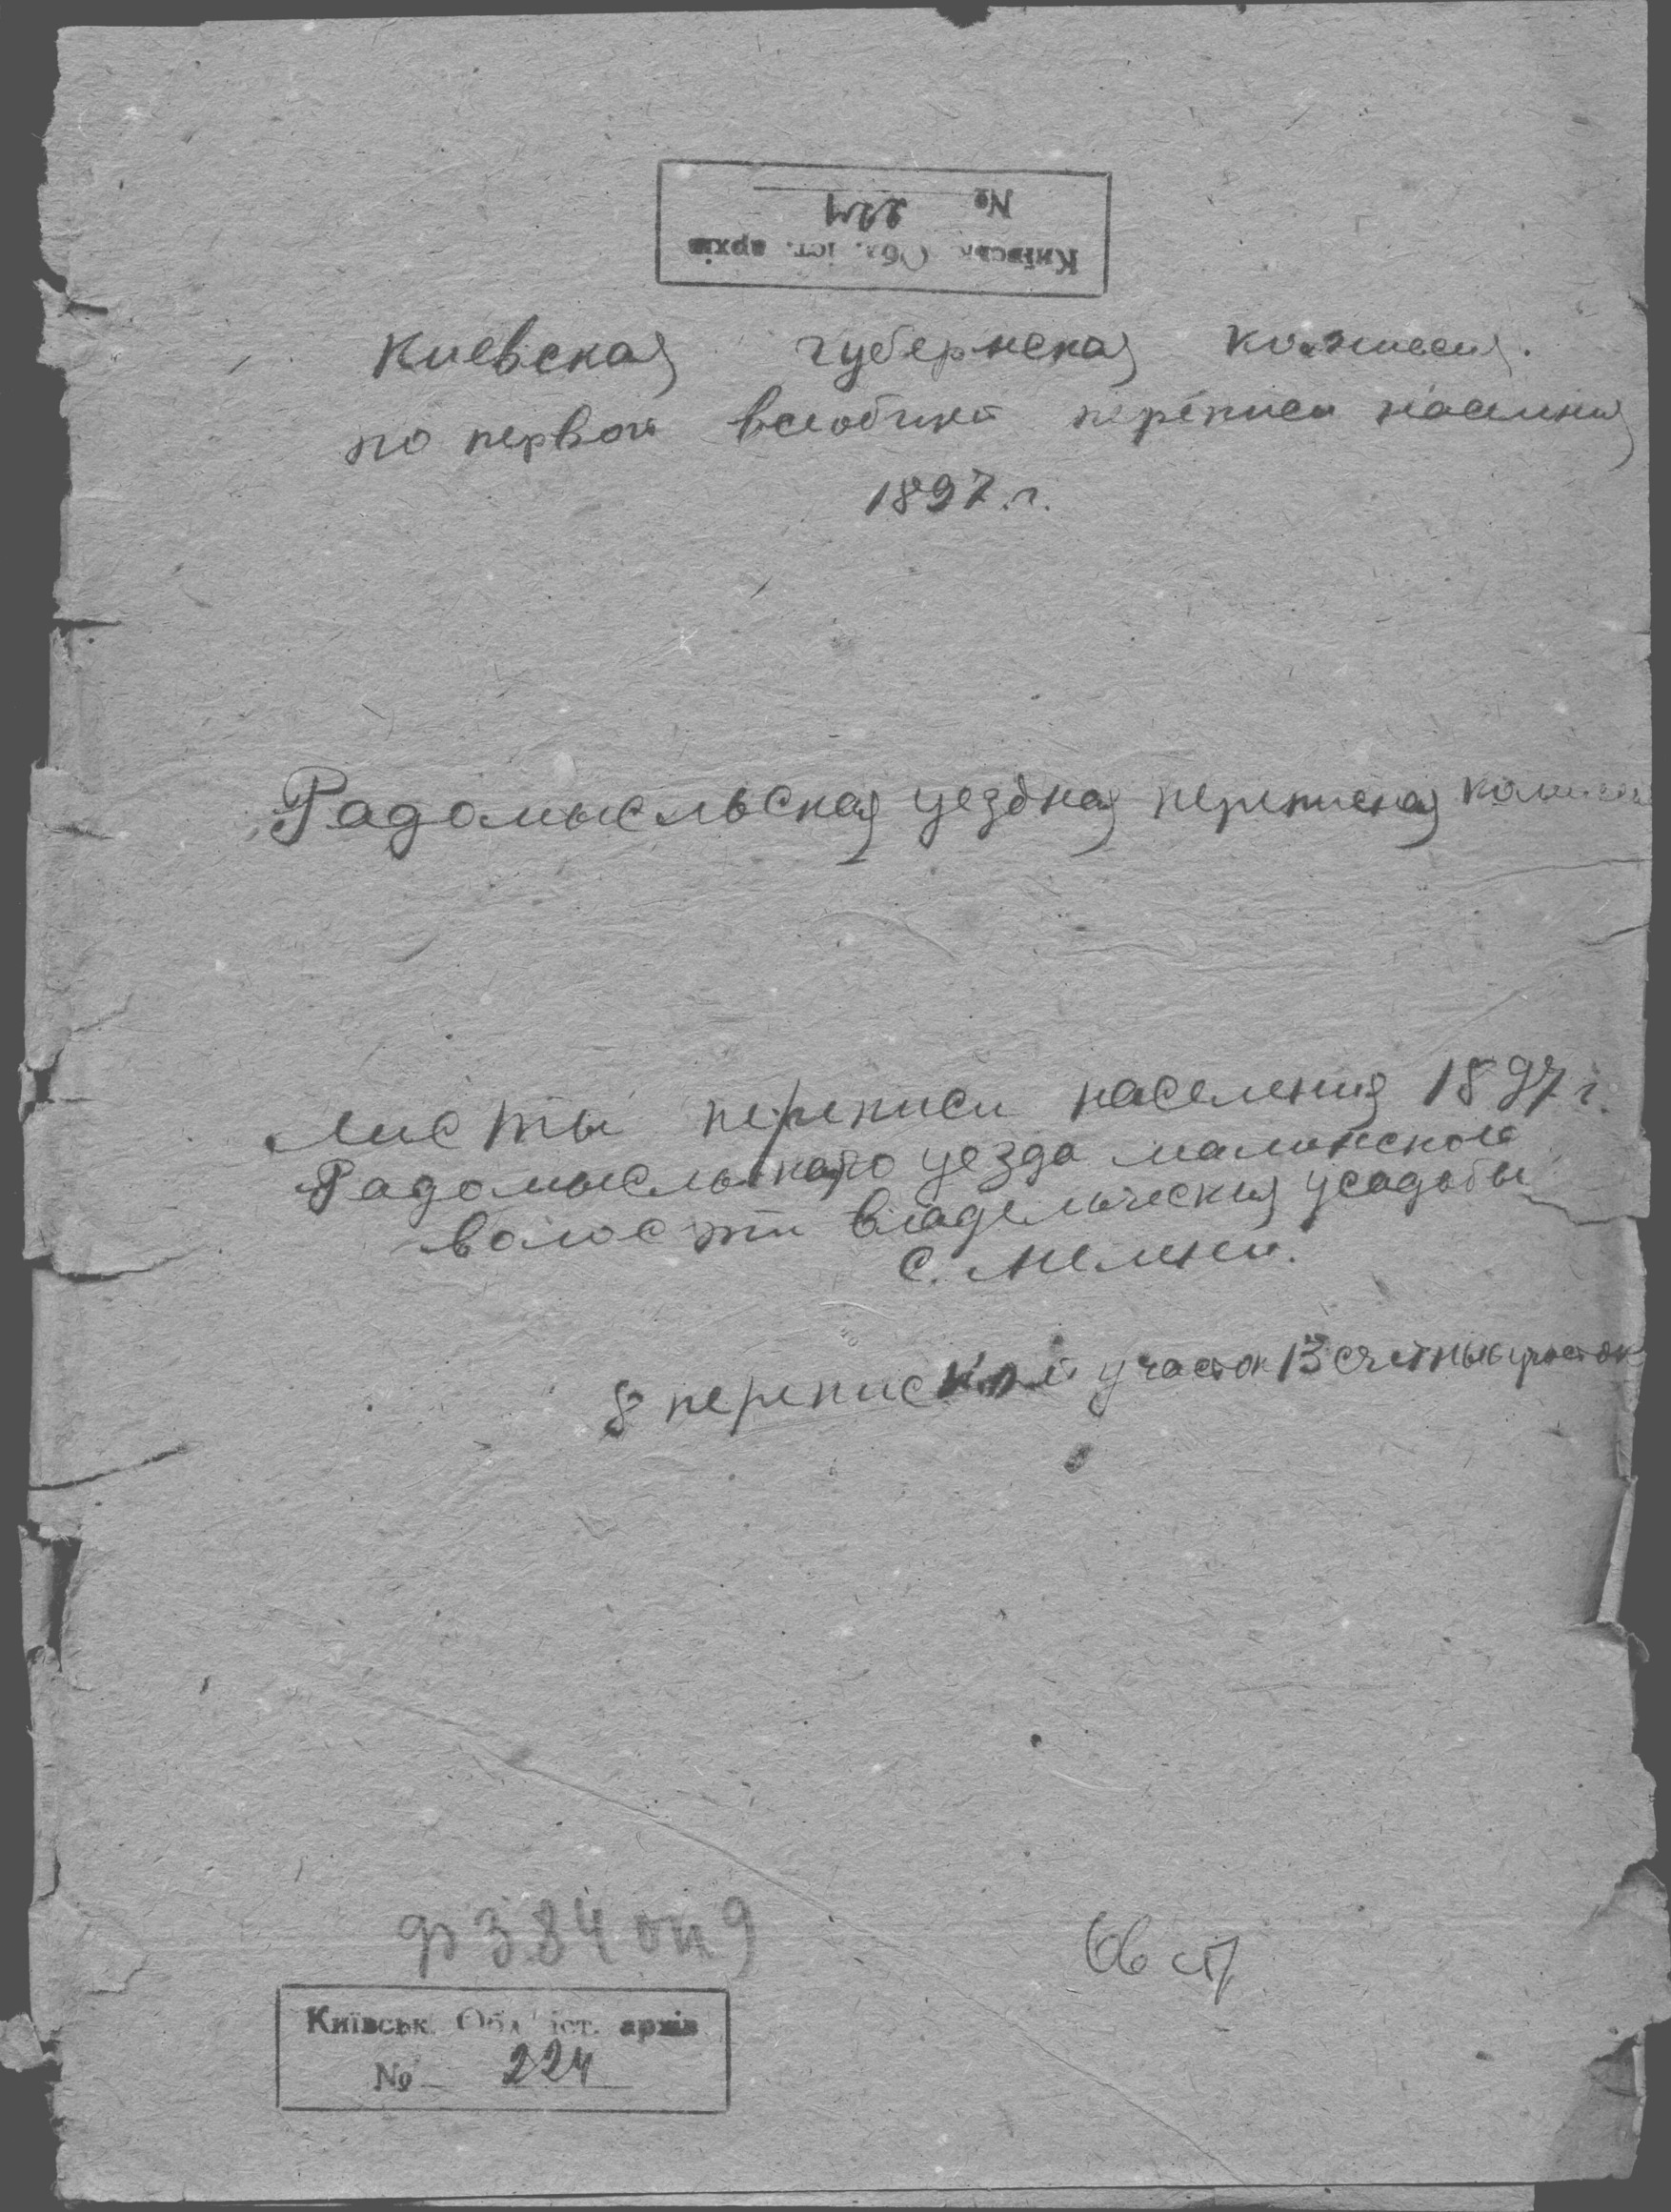 Київськ. Обл. іст. архів
№ 224
Киевская губернская комиссия.
по первой всеобщей переписи населения
1897.г.
Радомысльская уездная переписная комиссия
Листы переписи населения 1897 г.
Радомысльского уезда малинской
волости владельческия усадьбы
с. Мелени.
8 переписной участок 13 счетный участок
ф 384 оп 9
66 ст
Київськ. Обл. іст. архів
№ 224